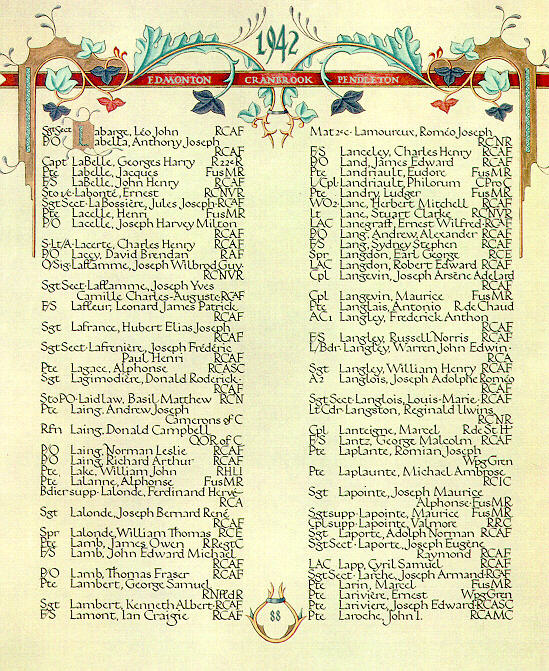 1942
EDMONTON CRANBROOK PENDLETON
Sgt Sect Labarge, Léo John RCAF
P/O Labella, Anthony Joseph
RCAF
Capt LaBelle, Georges Harry R22eR
Pte LaBelle, Jacques FusMR
F/S LaBelle, John Henry RCAF
Sto1/c Labonté, Ernest RCNVR
Sgt Sect LaBossière, Jules Joseph RCAF
Pte Lacelle, Henri FusMR
P/O Lacelle, Joseph Harvey Milton
RCAF
S-Lt/A Lacerte, Charles Henry RCAF
P/O Lacey, David Brendan RAF
O/Sig Laflamme, Joseph Wilbrod Guy
RCNVR
Sgt Sect Laflamme, Joseph Yves
Camille Charles-Auguste RCAF
F/S Lafleur, Leonard James Patrick
RCAF
Sgt Lafrance, Hubert Elias Joseph
RCAF
Sgt Sect Lafrenière, Joseph Frédéric
Paul Henri RCAF
Pte Lagacé, Alphonse RCASC
Sgt Lagimodière, Donald Roderick
RCAF
Sto PO Laidlaw, Basil Matthew RCN
Pte Laing, Andrew Joseph
Camerons of C
Rfn Laing, Donald Campbell
QOR of C
P/O Laing, Norman Leslie RCAF
P/O Laing, Richard Arthur RCAF
Pte Lake, William John RHLI
Pte Lalanne, Alphonse FusMR
Bdier supp Lalonde, Ferdinand Hervé
RCA
Sgt Lalonde, Joseph Bernard René
RCAF
Spr Lalonde, William Thomas RCE
Pte Lamb, James Owen RRegtC
F/S Lamb, John Edward Michael
RCAF
P/O Lamb, Thomas Fraser RCAF
Pte Lambert, George Samuel
RNfldR
Sgt Lambert, Kenneth Albert RCAF
F/S Lamont, Ian Craigie RCAF
Mat 2e c Lamoureux, Roméo Joseph
RCNR
F/S Lanceley, Charles Henry RCAF
P/O Land, James Edward RCAF
Pte Landriault, Eudore FusMR
L/Cpl Landriault, Philorum CProC
Pte Landry Ludger FusMR
WO2 Lane, Herbert Mitchell RCAF
Lt Lane, Stuart Clarke RCNVR
LAC Lanegraff, Ernest Wilfred RCAF
P/O Lang, Andrew Alexander RCAF
F/S Lang, Sydney Stephen RCAF
Spr Langdon, Earl George RCE
LAC Langdon, Robert Edward RCAF
Cpl Langevin, Joseph Arsène Adélard
RCAF
Cpl Langevin, Maurice FusMR
Pte Langlais, Antonio R de Chaud
AC1 Langley, Frederick Anthon
RCAF
F/S Langley, Russell Norris RCAF
L/Bdr Langley, Warren John Edwin
RCA
Sgt Langley, William Henry RCAF
A2 Langlois, Joseph Adolphe Roméo
RCAF
Sgt Sect Langlois, Louis-Marie RCAF
Lt Cdr Langston, Reginald Ulwins
RCNR
Cpl Lanteigne, Marcel R de St H
F/S Lantz, George Malcolm RCAF
Pte Laplante, Romian Joseph
WpgGren
Pte Laplaunte, Michael Ambrose
RCIC
Sgt Lapointe, Joseph Maurice
Alphonse FusMR
Sgt supp Lapointe, Maurice FusMR
Cpl supp Lapointe, Valmore RRC
Sgt Laporte, Adolph Norman RCAF
Sgt Sect Laporte, Joseph Eugène
Raymond RCAF
LAC Lapp, Cyril Samuel RCAF
Sgt Sect Larche, Joseph Armand RCAF
Pte Larin, Marcel FusMR
Pte Larivière, Ernest WpgGren
Pte Lariviere, Joseph Edward RCASC
Pte Laroche, John I. RCAMC
88